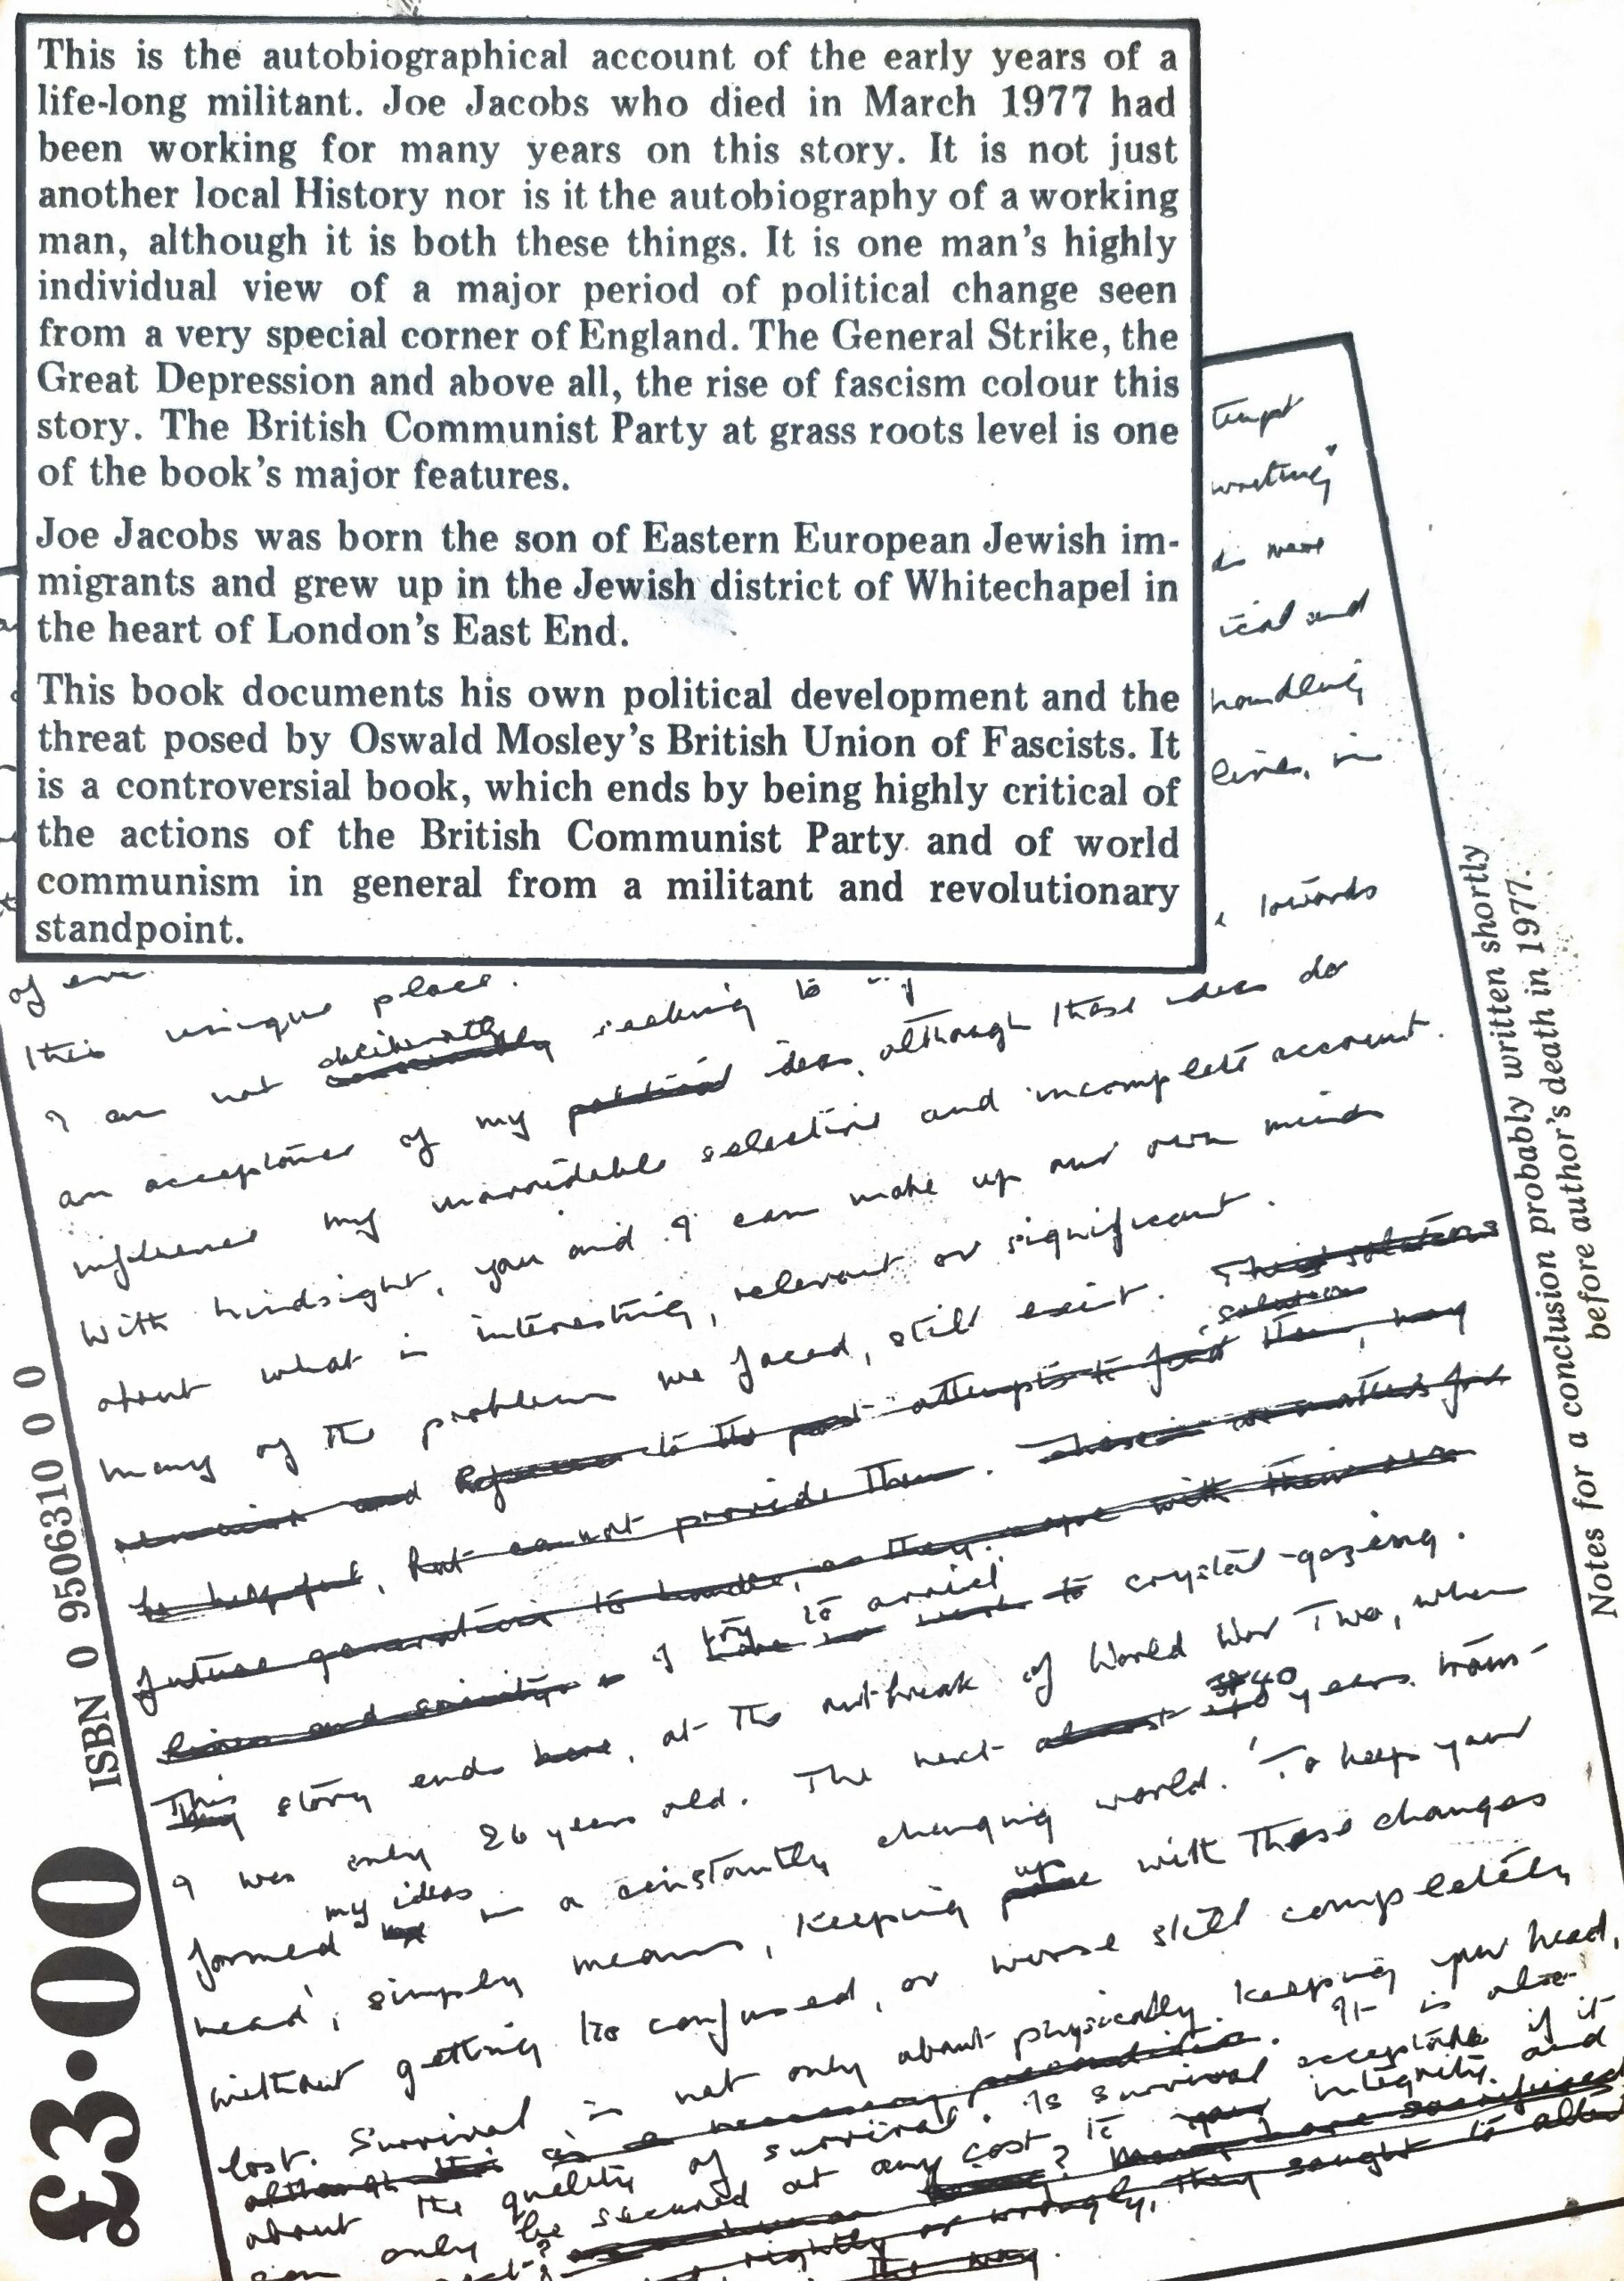 This is the autobiographical account of the early years of a
life-long militant. Joe Jacobs who died in March 1977 had
been working for many years on this story. It is not just
another local History nor is it the autobiography of a working
man, although it is both these things. It is one man's highly
individual view of a major period of political change seen
from a very special corner of England. The General Strike, the
Great Depression and above all, the rise of fascism colour this
story. The British Communist Party at grass roots level is one
of the book's major features.
Joe Jacobs was born the son of Eastern European Jewish im-
migrants and grew up in the Jewish district of Whitechapel in
the heart of London's East End.
This book documents his own political development and the
threat posed by Oswald Mosley's British Union of Fascists. It
is a controversial book, which ends by being highly critical of
the actions of the British Communist Party and of world
communism in general from a militant and revolutionary
standpoint.
tempt
writing"
ical and
handling
lines, in
towards
of
this unique place.
deliberately
I am not consciously seeking to
an acceptance of my political ideas, although these ideas do
influence my unavoidable selective and incomplete account.
With hindsight, you and I can make up our own minds
about what is interesting, relevant or significant.
many of the problems we faced, still exist. These solutions
solution
and Reference to the past attempts to find them, may
be helpful, but cannot provide them. These are matters for
future generations to handle, as they cope with their own
try to avoid
lives and I have no wish to crystal-gazing.
This
My story ends here, at the outbreak of World War Two, when
40
I was only 26 years old. The next almost 40 years trans-
my ideas
formed in a constantly changing world. 'To keep your
up
head', simply means, keeping pace with these changes
without getting too confused, or worse still completely
lost. Survival is not only about physically keeping your head,
although this is a necessary precondition. It is also
about the quality of survival. Is survival acceptable if it
can only be secured at any cost to your integrity and
rightly or wrongly, they sought to alter
the way.
Notes for a conclusion probably written shortly
before author's death in 1977.
ISBN 0 9506310 0 0
£3·00